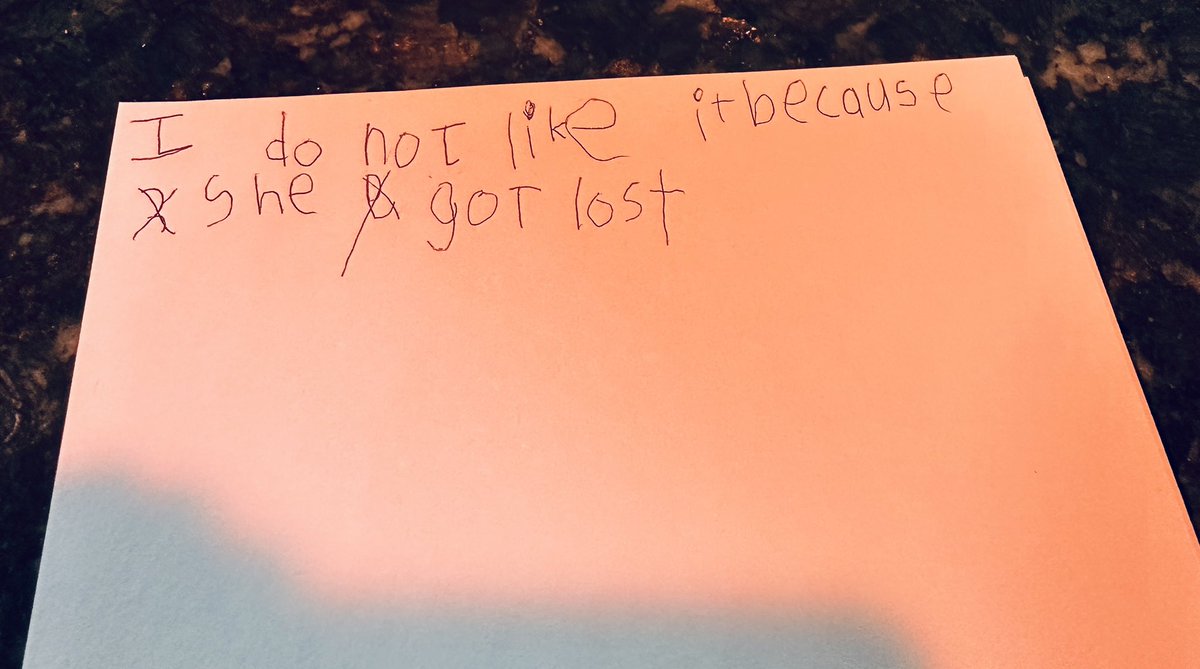 I do not like itbecause
she got lost